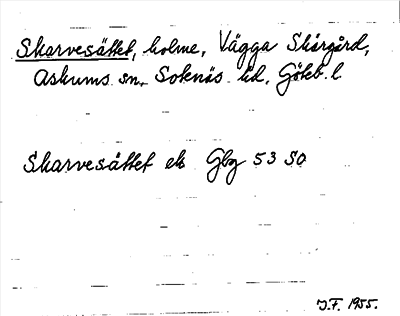 Skarvesättet, holme, Vägga Skärgård,
Askums sn. Sotenäs hd. Göteb. l
Skarvesättet ek Gbg 53 SO
J.F. 1955.